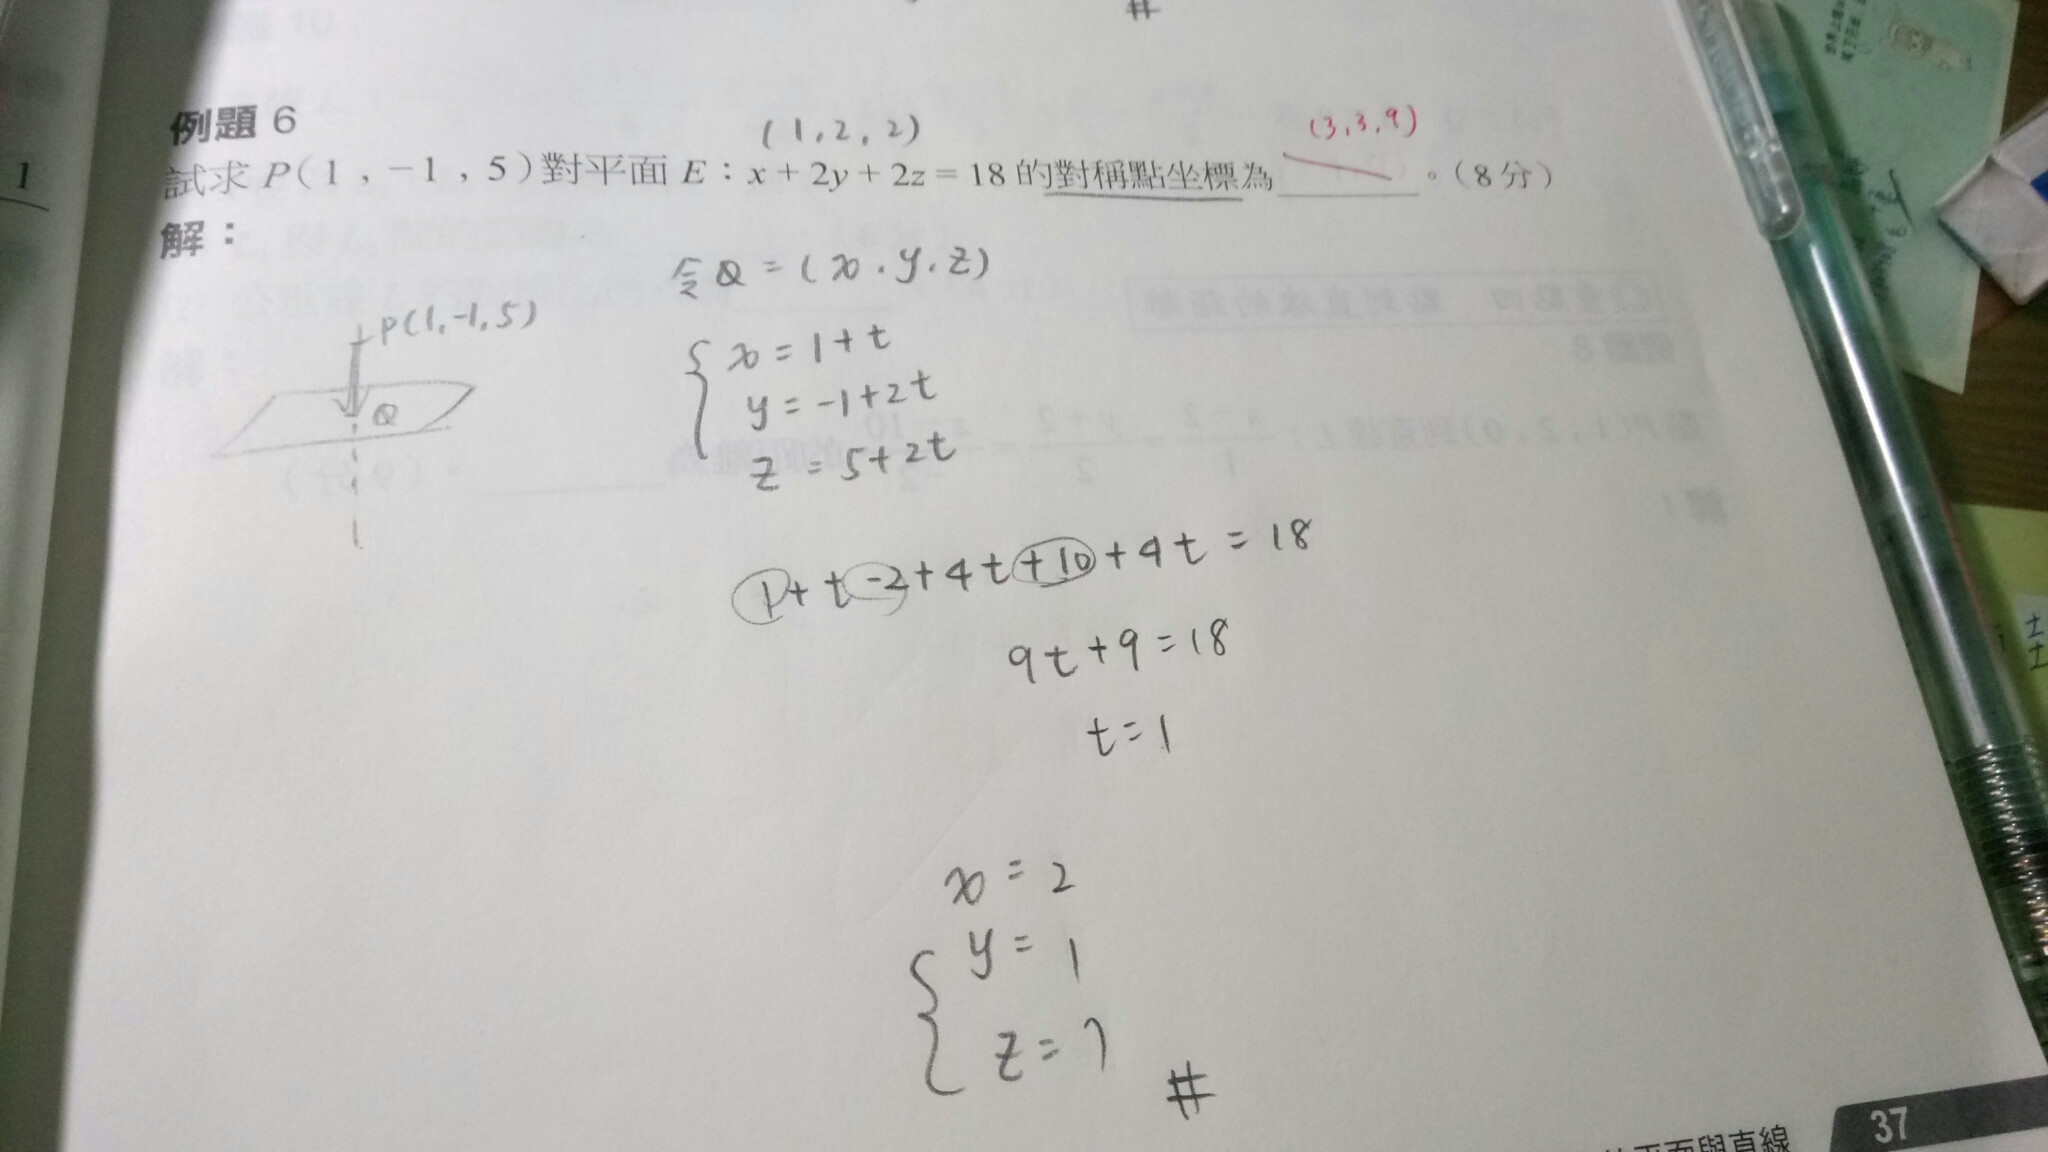 #
例題 6
(1,2,2)
(3,3,9)
試求 P(1,-1,5)對平面 E:x+2y+2z=18的對稱點坐標為________。(8分)
解:
令Q=(x,y,z)
P(1,-1,5)
Q
x=1+t
y=-1+2t
z=5+2t
1+t-2+4t+10+4t=18
9t+9=18
t=1
x=2
y=1
z=7
#
平面與直線
37
1